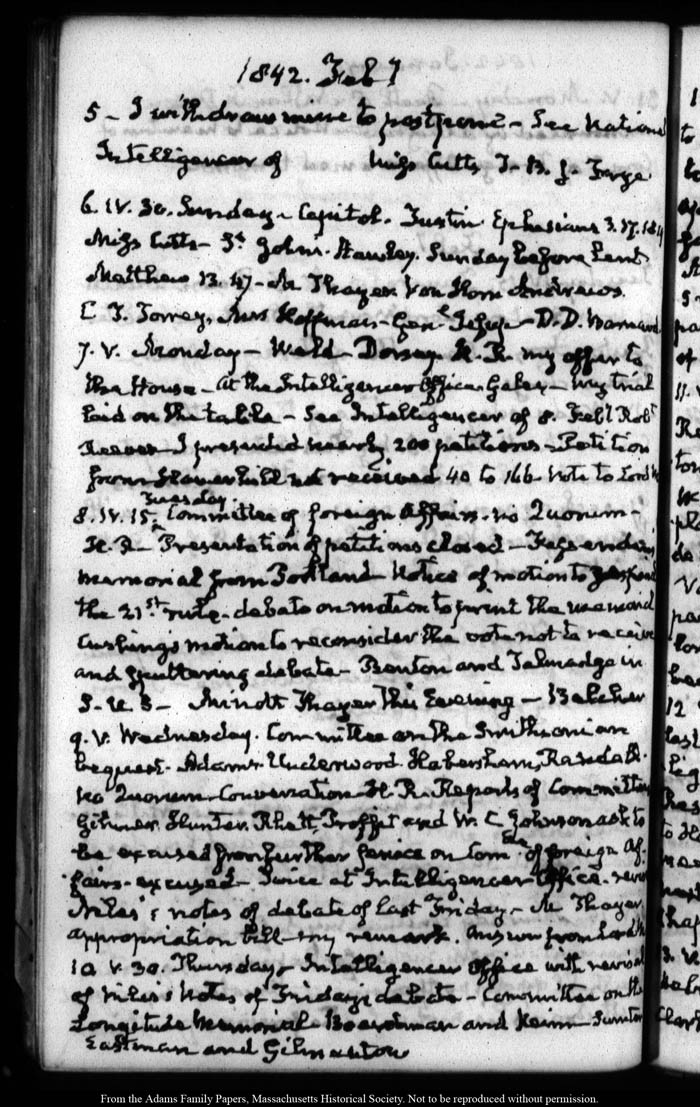 1842. Feb 7
5 - I withdraw mine to postpone - See National
Intelligencer of Miss Cutts T. B. J. Frye
6. IV. 30. Sunday - Capitol. Tustin Ephesians 3. 17.18.19
Miss Cutts - St. John's. Hawley. Sunday before Lent
Matthew 13. 47 - M Thayer Von Horn Andrews.
C T. Torrey, Mrs Hoffman - Genl. - D. D. Barnard
7. V. Monday - Weld - Dorsey H. R. my offer to
the House - At the Intelligencer Office. Gales - my trial
laid on the table - See Intelligencer of 8. Feby Robt
Reeves I presented nearly 200 petitions - Petition
from Haverhill not received 40 to 166. Vote to
Tuesday.
8. IV. 15. Committee of foreign Affairs. no Quorum -
H. R - Presentation of petitions closed - Fessenden,
memorial from Portland Notice of motion to
the 21st rule. debate on motion to print the memorial
Cushing's motion to reconsider the vote not to receive
and sputtering debate - Benton and Talmadge in
S. U. S - Minott Thayer this Evening - Belcher
9. V. Wednesday. Committee on the Smithsonian
bequest. Adams Underwood Habersham, Randall.
no Quorum Conversation H. R. Reports of Committees
Gilmer Hunter. Rhett, Proffit and W. C Johnson ask to
be excused from further service on Comtee of foreign Af-
fairs - excused - Twice at Intelligencer Office. revise
Niles's notes of debate of last Friday - M Thayer
appropriation bill my remark. Answer from Lord
10 V. 30. Thursday - Intelligencer Office with revisal
of Niles's Notes of Friday's debate - Committee on the
Longitude Memorial. Boardman and Keim - Sumter
Eastman and Gilmanton
From the Adams Family Papers, Massachusetts Historical Society. Not to be reproduced without permission.